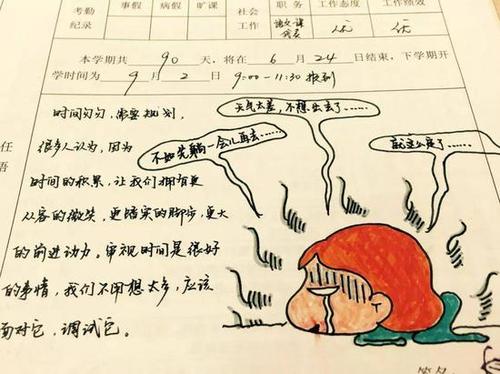 考勤 事假 病假 旷课 社会 职务 工作态度 工作绩效
纪录 工作 语文课 优 优
代表
本学期共 90 天，将在 6 月 24 日结束，下学期开
学时间为 9 月 2 日 9:00-11:30 报到
时间匆匆，需要规划，
很多人认为，因为
时间的积累，让我们拥有更
从容的微笑，更踏实的脚步，更大
的前进动力。审视时间是很好
的事情，我们不用想太多，应该
面对它，调试它。
任
语
天气太差，不想出去了……
不如先躺一会儿再去……
就这么定了……